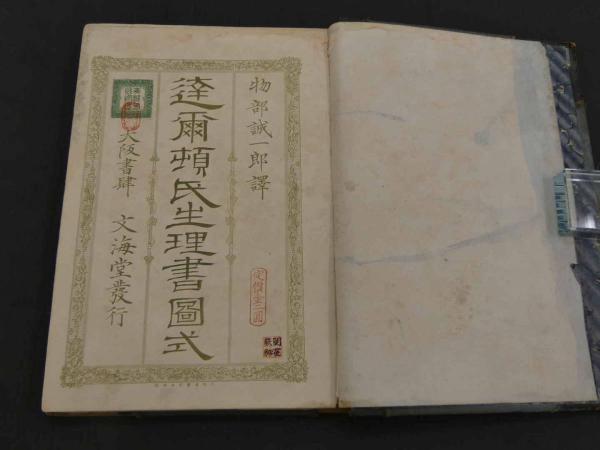 物部誠一郎譯
達爾頓氏生理書圖式
大阪書肆 文海堂發行